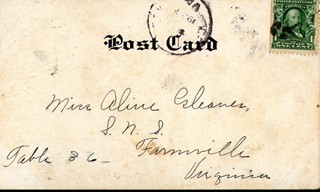 Post Card
Miss Aline Gleaves,
S. N. S.
Farmville
Table 36 —
Virginia